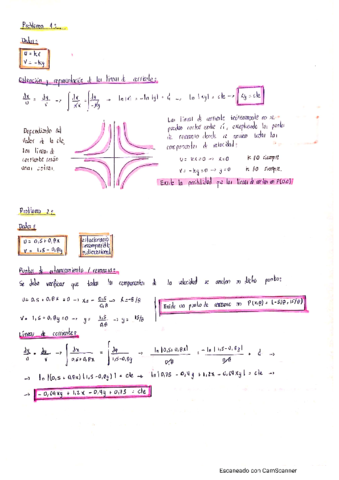 Problema 1:
Datos:
u = kx
v = -ky
Obtención y representación de las líneas de corriente:
dx/u = dy/v → ∫ dx/kx = ∫ dy/-ky → ln|x| = -ln|y| + C → ln|xy| = cte → xy = cte
Dependiendo del
valor de la cte,
las líneas de
corriente serán
unas u otras.
Las líneas de corriente teóricamente no se
pueden cortar entre sí, exceptuando los puntos
de remanso donde se anulan todas las
componentes de velocidad:
u = kx = 0 → x = 0
v = -ky = 0 → y = 0
Existe la posibilidad que las líneas se corten en P(0,0)
Problema 2:
Datos:
u = 0,5 + 0,8x
v = 1,5 - 0,8y
Se debe verificar que todas las componentes de la velocidad se anulan en dicho punto:
u = 0,5 + 0,8x = 0
v = 1,5 - 0,8y = 0
Existe un punto de remanso en
Líneas de corriente:
dx/u = dy/v → ∫ dx/0,5+0,8x = ∫ dy/1,5-0,8y → ln|0,5+0,8x|/0,8 = -ln|1,5-0,8y|/0,8 + C →
→ ln|(0,5+0,8x)(1,5-0,8y)| = cte → ln|0,75 - 0,64xy + 1,2x - 0,4y| = cte →
→ - 0,64xy + 1,2x - 0,4y + 0,75 = cte
Escaneado con CamScanner